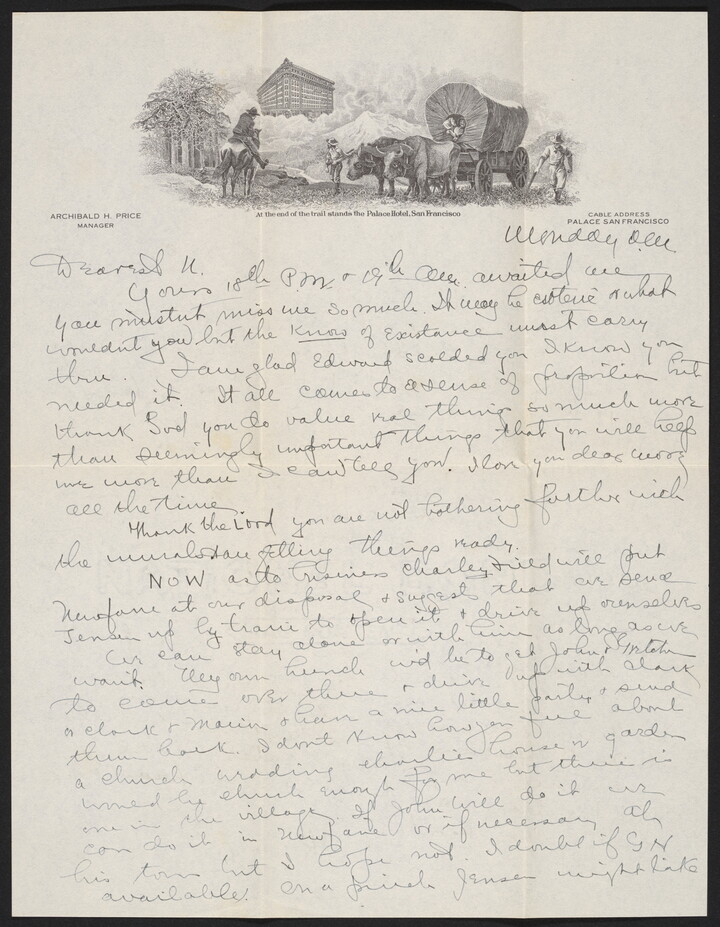 At the end of the trail stands the Palace Hotel, San Francisco
ARCHIBALD H. PRICE
MANAGER
CABLE ADDRESS
PALACE SAN FRANCISCO
Monday a.m.
Dearest N.
Yours 18th P.M. & 19th a.m. awaited me
You mustnt miss me so much. It may be esoteric & what
wouldnt you but the Know of Existance must carry
thru. I am glad Edward scolded you I know you
needed it. It all comes to a sense of proportion but
thank God you do value real things so much more
than seemingly important things that you will help
me more than I can tell you. I love you dear more
all the time.
Thank the Lord you are not bothering further with
the murals & are getting things ready.
NOW as to business Charley Field will put
Newfane at our disposal & suggests that we send
Jensen up by train to open it & drive up ourselves
We can stay alone or with him as long as we
want. My own hunch wd be to get John &
to come over there & drive up with Clark
or Clark & Marion & have a nice little party & send
them back. I dont know how you feel about
a church wedding Charlies house or garden
would be church enough for me but there is
one in the village. If John will do it we
can do it in Newfane or if necessary at
his town but I hope not. I doubt if G N
available. On a pinch Jensen might take